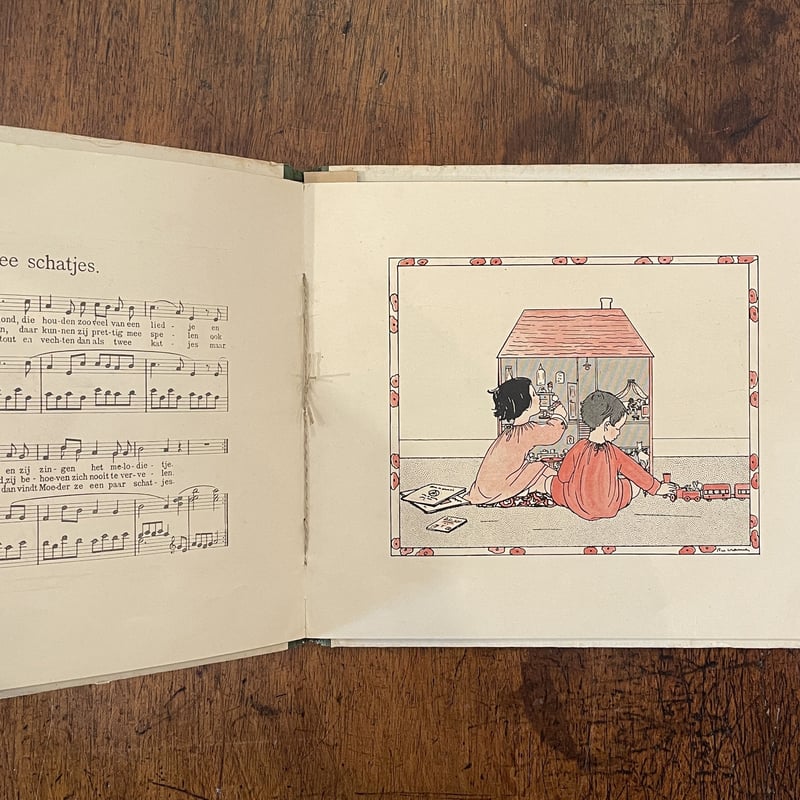 ee schatjes.
ond, die hou-den zoo veel van een lied - je en
n, daar kun-nen zij pret-tig mee spe - len ook
tout en vech-ten dan als twee kat - jes maar
en zij zin-gen het me-lo-die-tje.
d zij be-hoe-ven zich nooit te ver-ve-len.
dan vindt Moe-der ze een paar schat-jes.